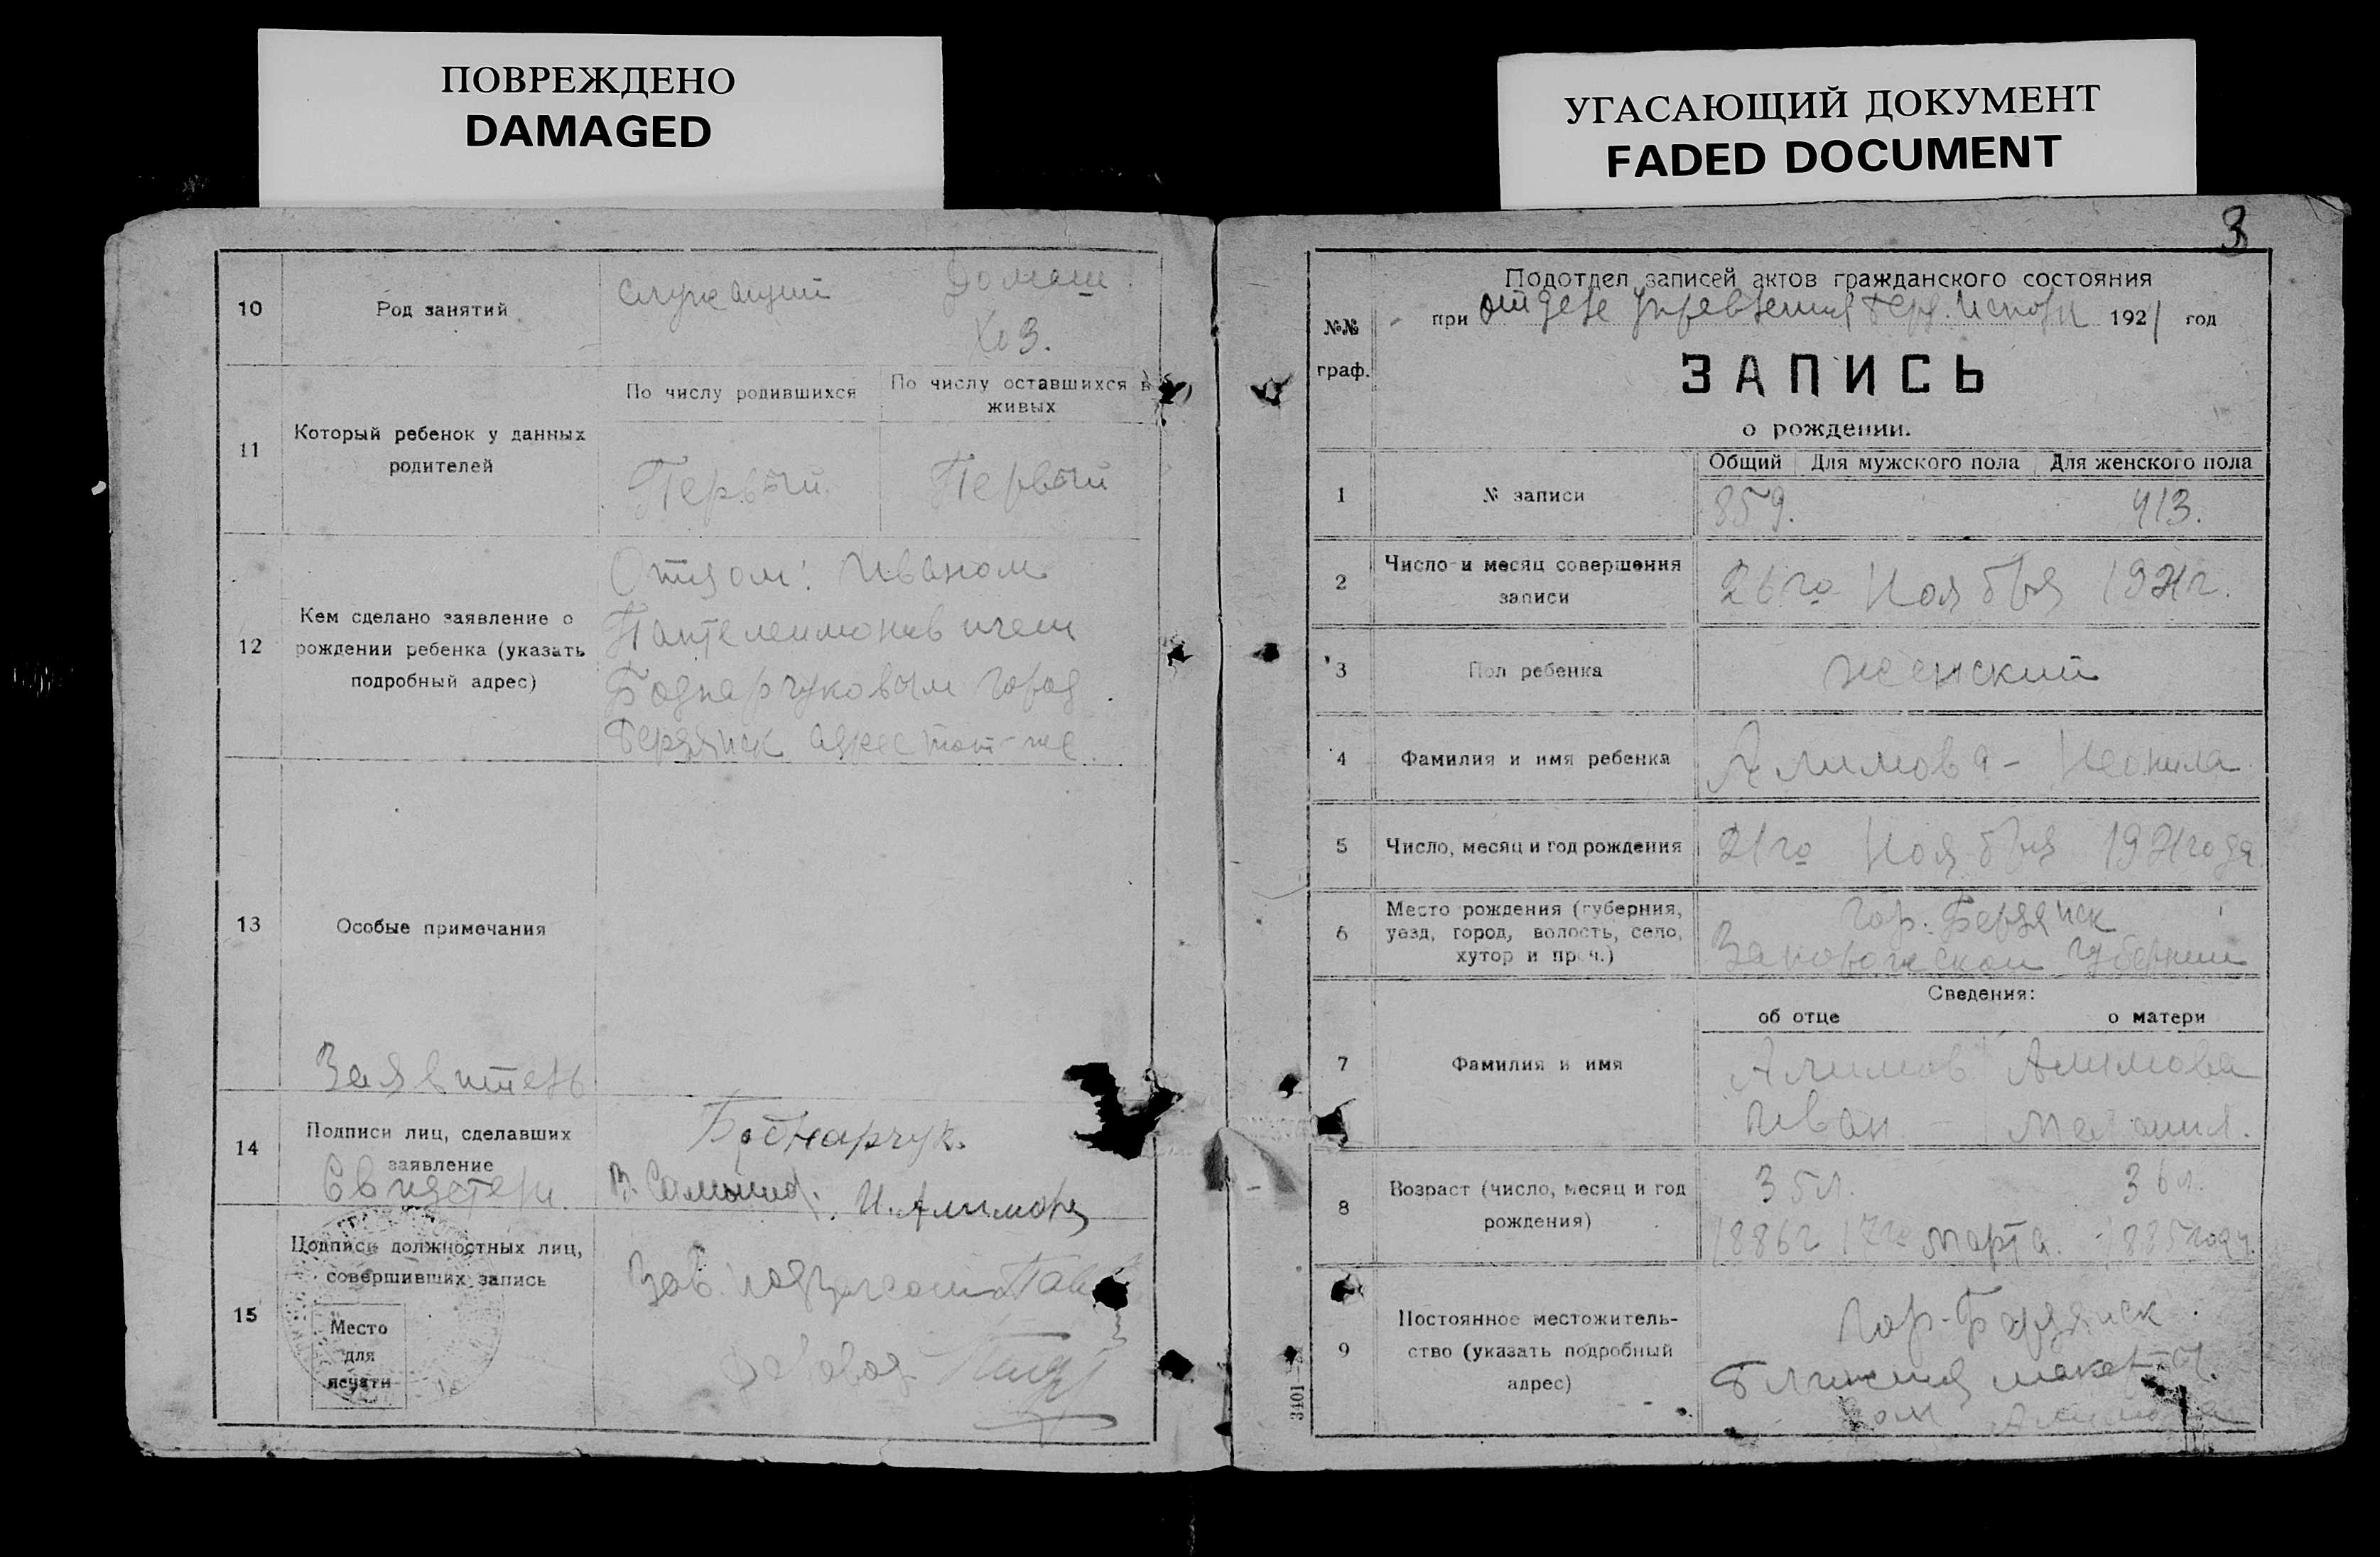 ПОВРЕЖДЕНО
DAMAGED
УГАСАЮЩИЙ ДОКУМЕНТ
FADED DOCUMENT
10
Род занятий
служащий
Домаш.
Хоз.
11
Который ребенок у данных
родителей
По числу родившихся
По числу оставшихся в
живых
Первый.
Первый
12
Кем сделано заявление о
рождении ребенка (указать
подробный адрес)
Отцом: Иваном
Пантелеимоновичем
Боднарчуковым город
Бердянск адрес тот-же
13
Особые примечания
Заявитель
14
Подписи лиц, сделавших
заявление
Свидетели
Боднарчук.
И. Алимов
15
Подписи должностных лиц,
совершивших запись
Место
для
печати
Зав. подотделом
3
№№
граф.
Подотдел записей актов гражданского состояния
при отделе Управления Берд. Исполк 1921 год
ЗАПИСЬ
о рождении.
1
№ записи
Общий
Для мужского пола
Для женского пола
859.
413.
2
Число и месяц совершения
записи
26го Ноября 1921г.
3
Пол ребенка
женский
4
Фамилия и имя ребенка
Алимова - Неонила
5
Число, месяц и год рождения
21го Ноября 1921 года
6
Место рождения (губерния,
уезд, город, волость, село,
хутор и проч.)
Гор. Бердянск
Запорожской губернии
Сведения:
об отце
о матери
7
Фамилия и имя
Алимов
Иван -
Алимова
8
Возраст (число, месяц и год
рождения)
35л.
36л.
1886г 17го марта.
1885 году.
9
Постоянное местожитель-
ство (указать подробный
адрес)
Гор. Бердянск
дом Алимова
3401